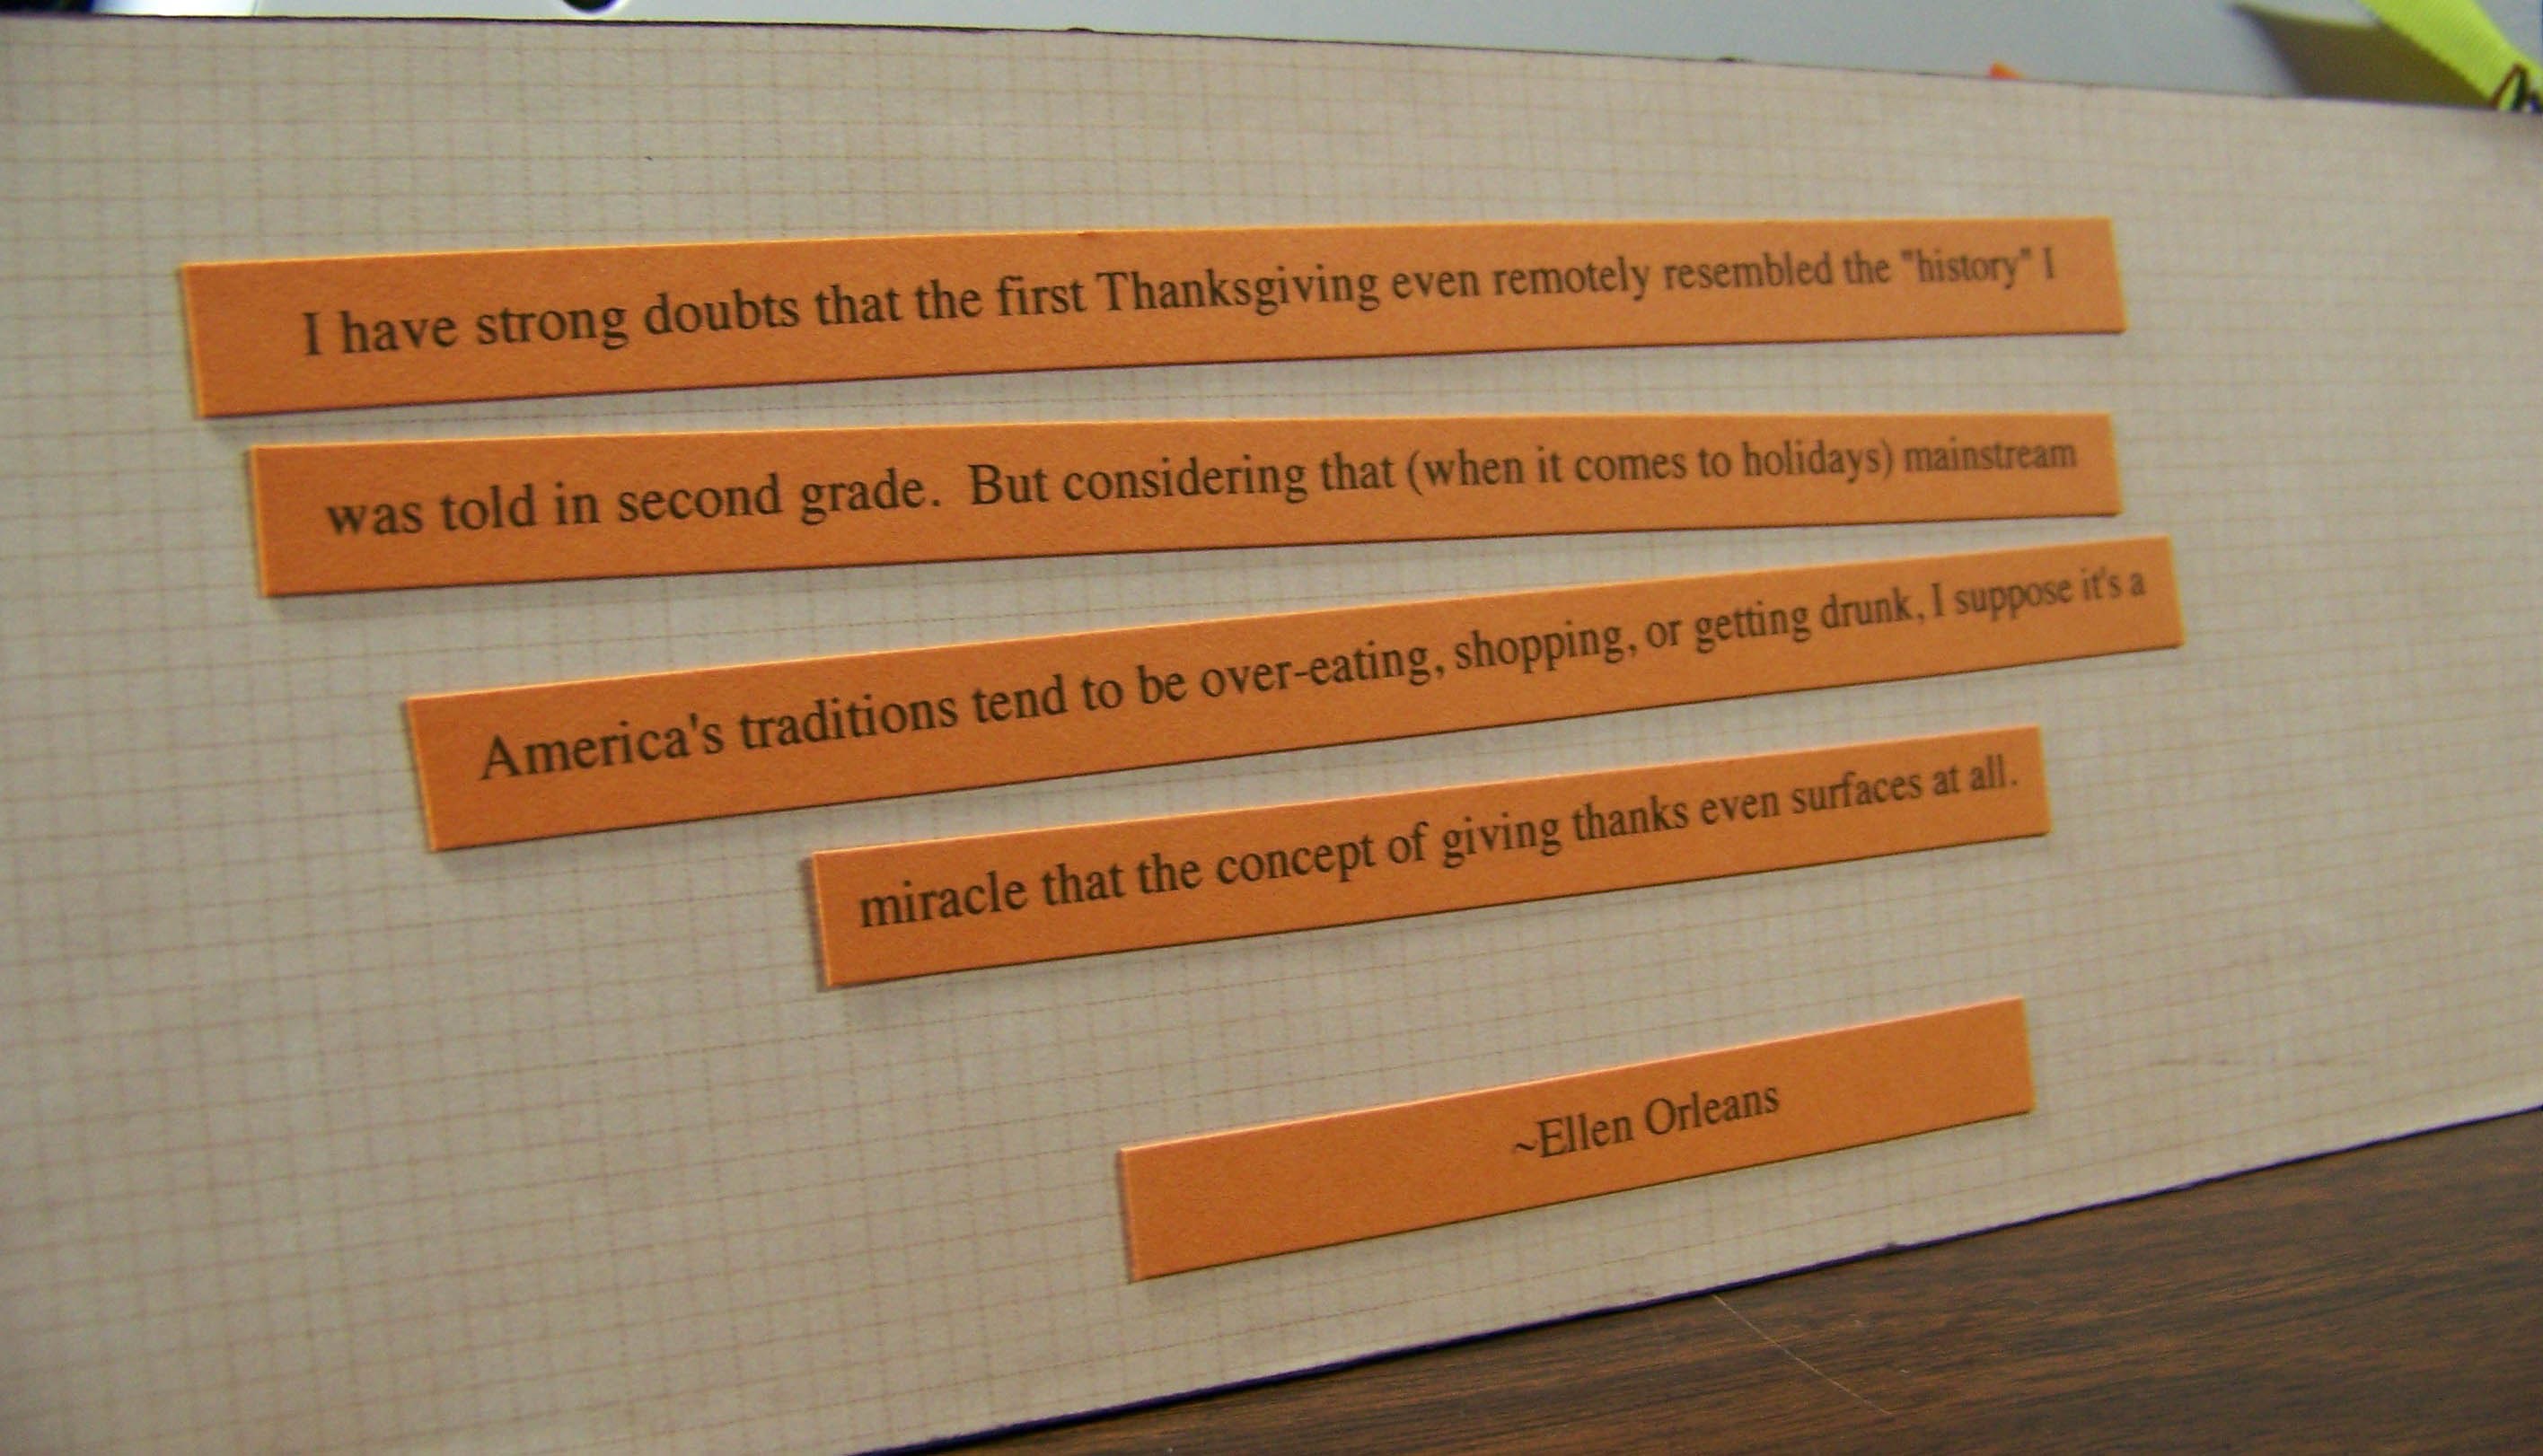 I have strong doubts that the first Thanksgiving even remotely resembled the "history" I
was told in second grade.  But considering that (when it comes to holidays) mainstream
America's traditions tend to be over-eating, shopping, or getting drunk, I suppose it's a
miracle that the concept of giving thanks even surfaces at all.
~Ellen Orleans